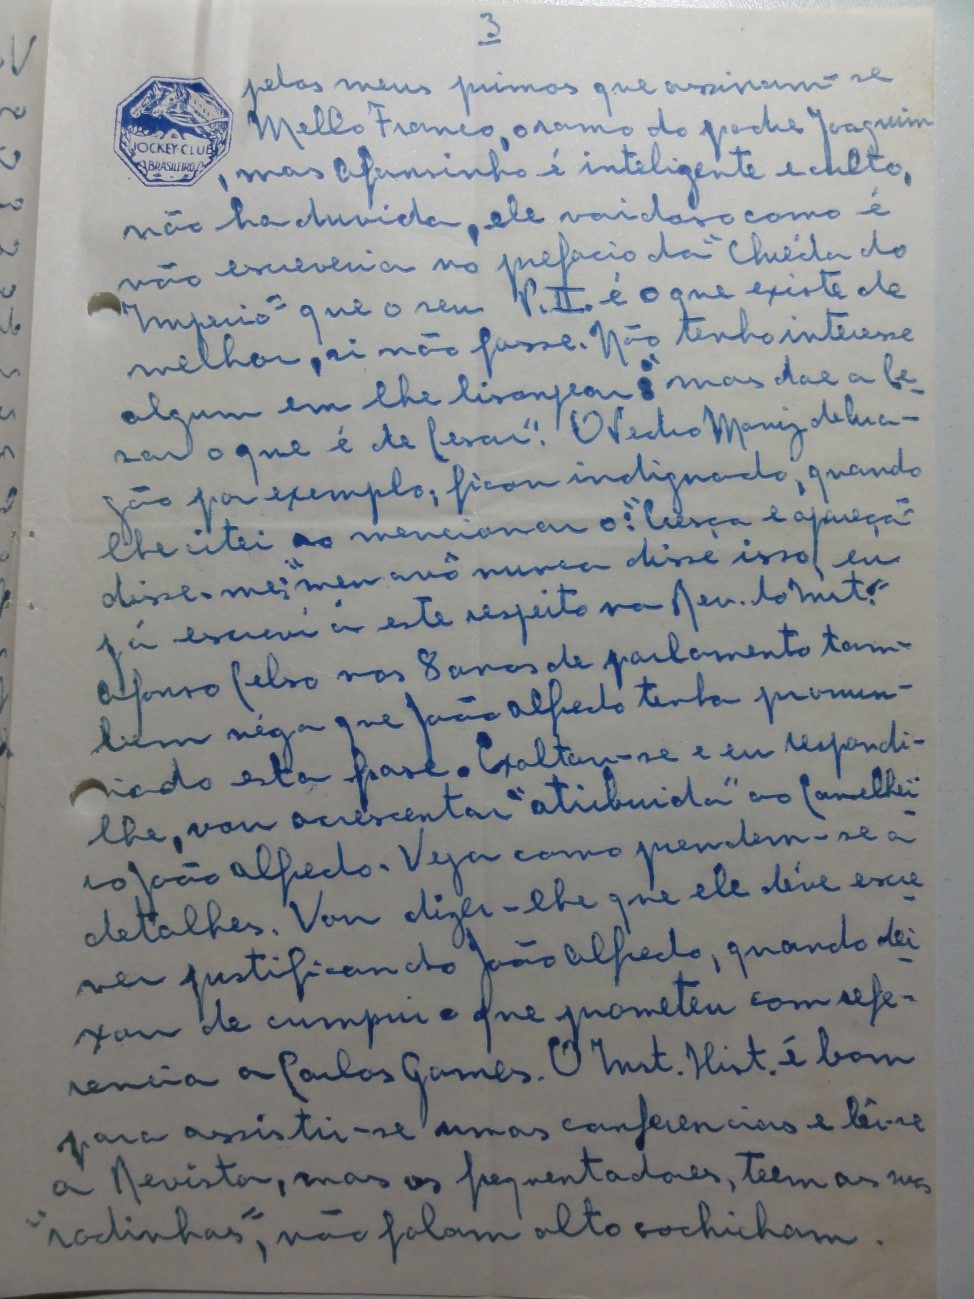 3
JOCKEY-CLUB
BRASILEIRO
pelos meus primos que assinam-se
Mello Franco, o ramo do padre Joaquim
, mas Afonsinho é inteligente e culto,
não ha duvida, ele vaidoso como é
não escreveria no prefacio da "Quéda do
Imperio" que o seu P.II. é o que existe de
melhor, si não fosse. Não tenho interesse
algum em lhe lisongear: "mas dae a Ce-
sar o que é de Cesar". O Pedro Moniz de Ara-
gão por exemplo, ficou indignado, quando
lhe citei ao mencionar o: "Cresça e apareça"
disse-me: "meu avô nunca disse isso, eu
já escrevi á este respeito na Rev. do Inst."
Afonso Celso nos 8 anos de parlamento tam-
bem néga que João Alfredo tenha pronun-
ciado esta frase. Exaltou-se e eu respondi-
lhe, vou acrescentar "atribuida" ao Conselhei
ro João Alfredo. Veja como prendem-se á
detalhes. Vou dizer-lhe que ele déve escre
ver justificando João Alfredo, quando dei-
xou de cumprir o que prometeu com refe-
rencia a Carlos Gomes. O Inst. Hist. é bom
para assistir-se umas conferencias e lêr-se
a Revista, mas os frequentadores, teem as suas
"rodinhas", não falam alto cochicham.